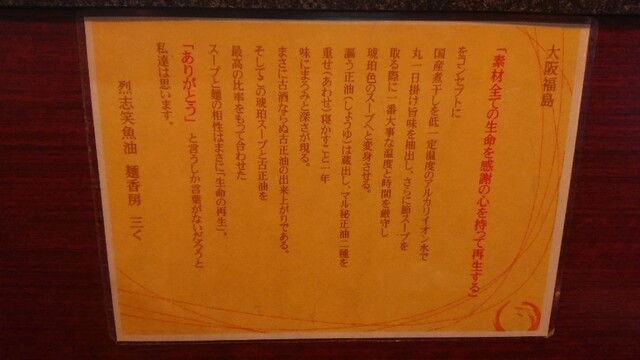 大阪福島
「素材全ての生命を感謝の心を持って再生する」
をコンセプトに
国産煮干しを低一定温度のアルカリイオン水で
丸一日掛け旨味を抽出し、さらに節スープを
取る際に一番大事な温度と時間を厳守し
琥珀色のスープへと変身させる。
謳う正油（しょうゆ）は蔵出し、マル秘正油二種を
重せ（あわせ）寝かすこと一年
味にまろみと深さが現る。
まさに古酒ならぬ古正油の出来上がりである。
そしてこの琥珀スープと古正油を
最高の比率をもって合わせた
スープと麺の相性はまさに「生命の再生」。
「ありがとう」と言うしか言葉がないだろうと
私達は思います。
烈志笑魚油 麺香房 三く